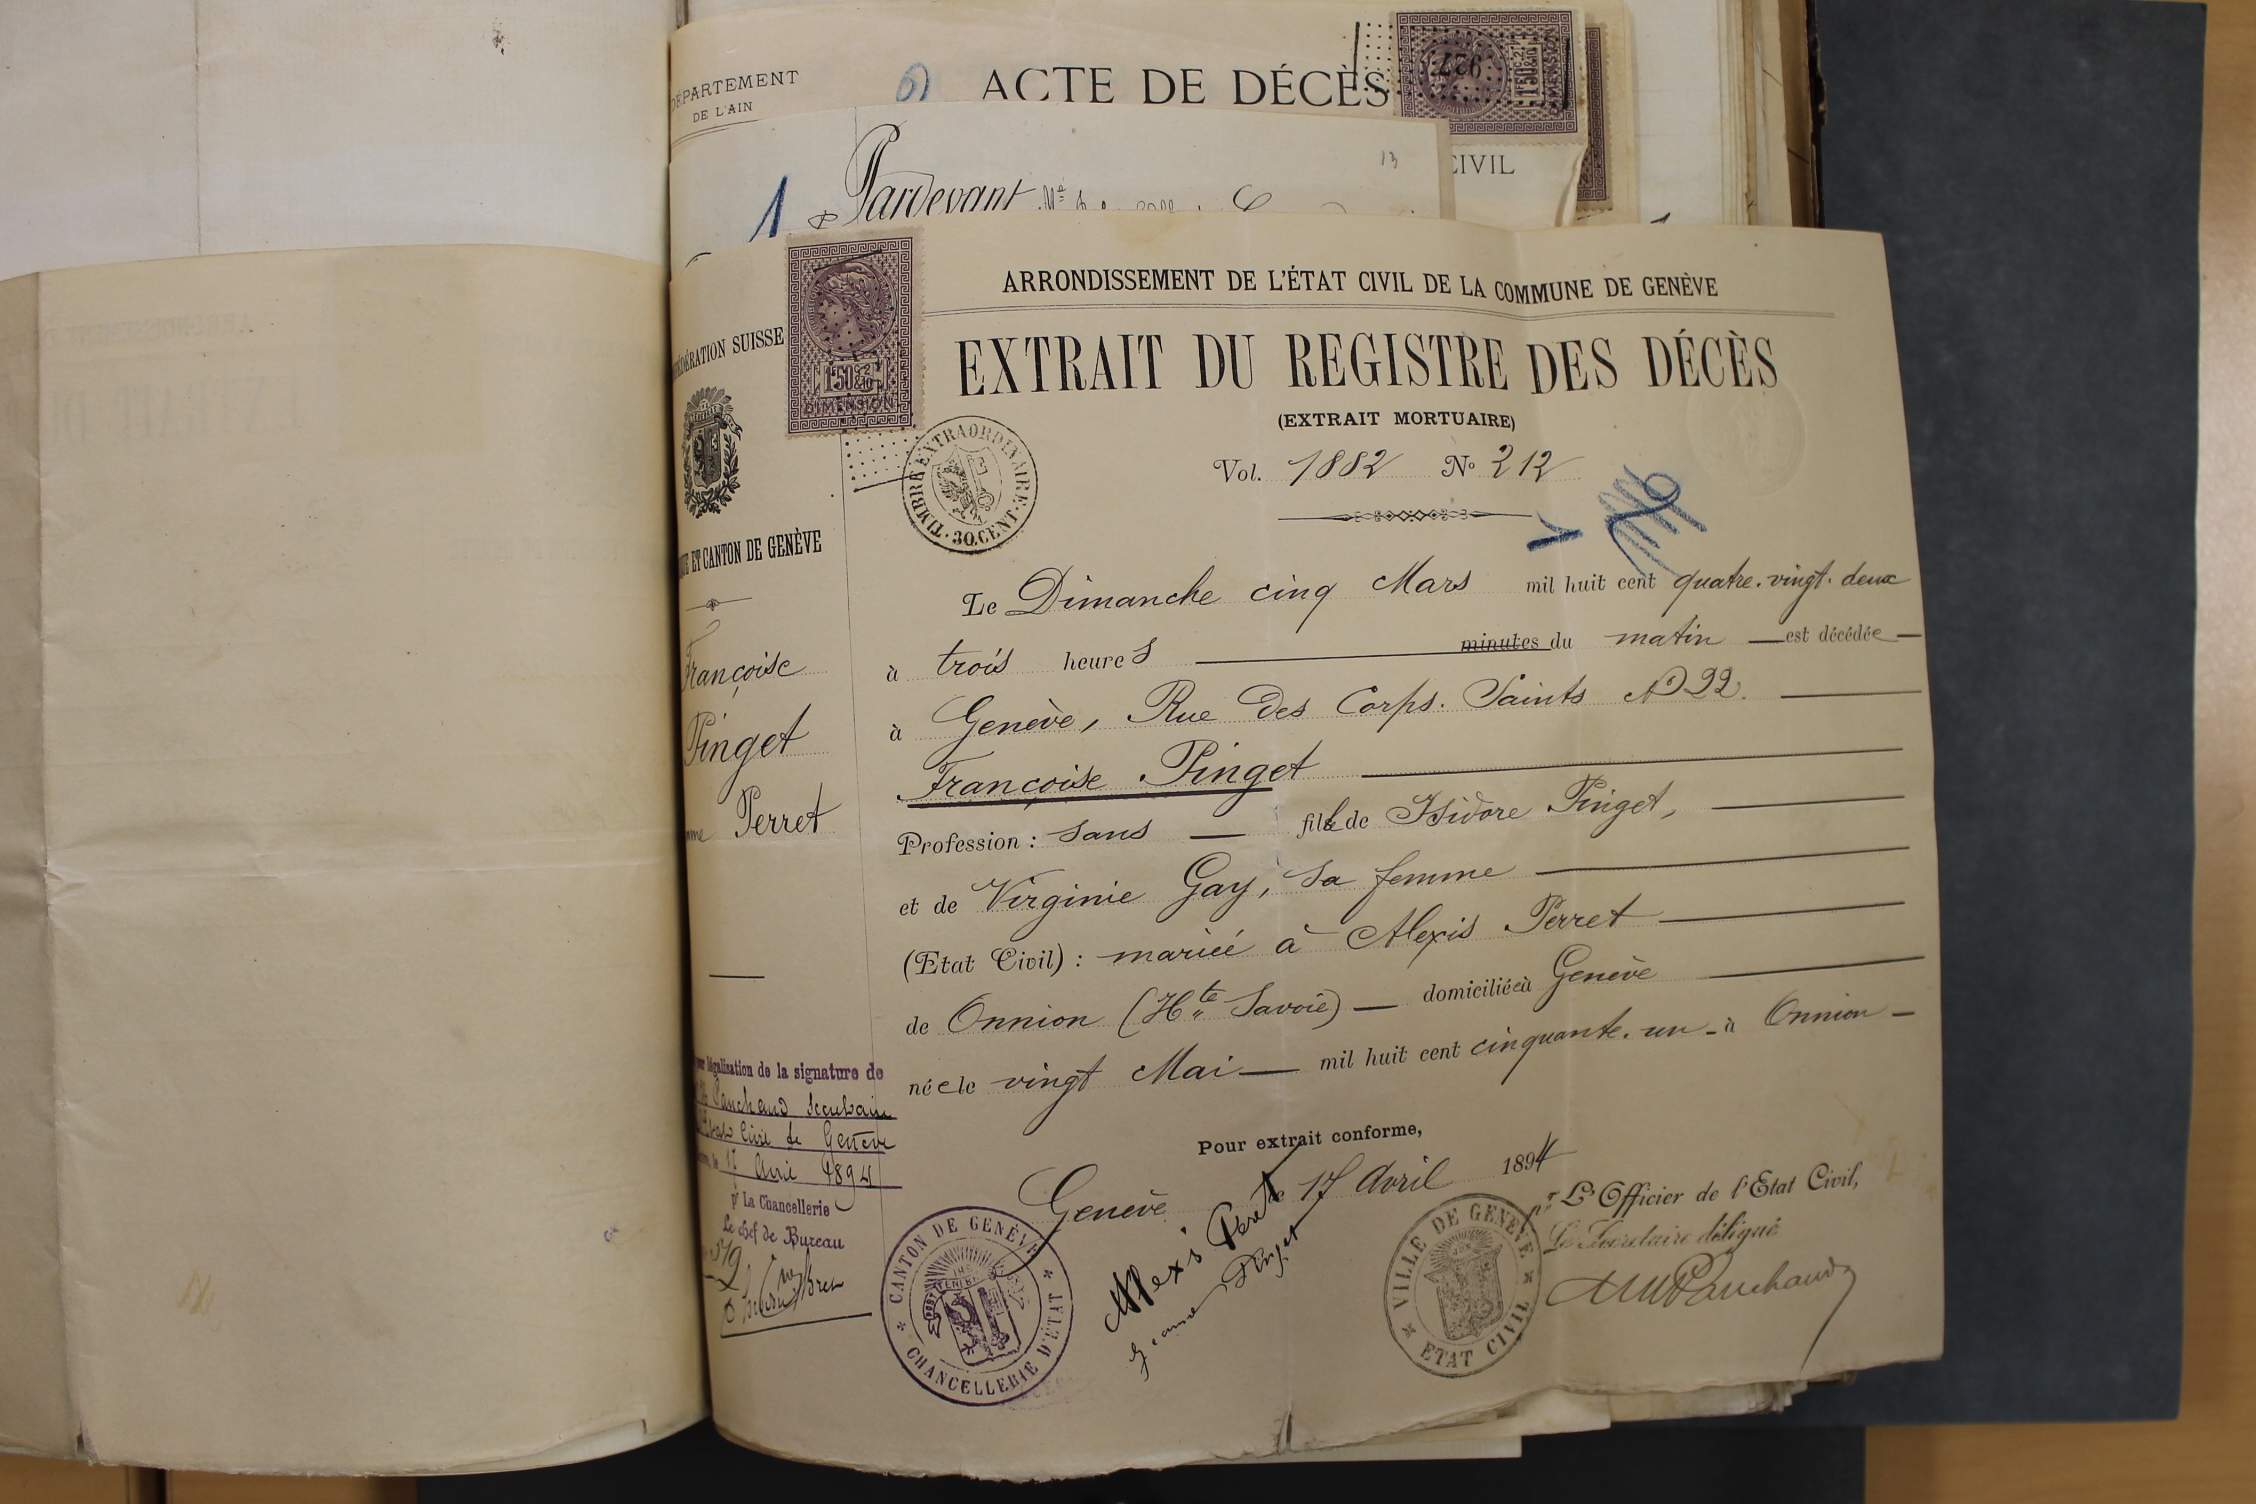 DÉPARTEMENT
DE L'AIN
ACTE DE DÉCÈS
1 50 c 2/10
DIMENSION
CIVIL
13
1 Pardevant Me
ARRONDISSEMENT DE L'ÉTAT CIVIL DE LA COMMUNE DE GENÈVE
EXTRAIT DU REGISTRE DES DÉCÈS
(EXTRAIT MORTUAIRE)
Vol. 1882 No 212
FÉDÉRATION SUISSE
1 50 c 2/10
DIMENSION
TIMBRE EXTRAORDINAIRE · 30 CENT ·
ET CANTON DE GENÈVE
Françoise
Pinget
Perret
Le Dimanche cinq Mars mil huit cent quatre-vingt-deux
à trois heures minutes du matin est décédée
à Genève, Rue des Corps-Saints No 22.
Françoise Pinget
Profession : sans fille de Isidore Pinget,
et de Virginie Gay, sa femme
(Etat Civil) : mariée à Alexis Perret
de Onnion (Hte Savoie) domiciliée à Genève
née le vingt Mai mil huit cent cinquante-un à Onnion
Pour extrait conforme,
Genève le 17 Avril 1894
pr L'Officier de l'Etat Civil,
Le Secrétaire délégué
Panchaud
Alexis Peret
Jeanne Pinget
VILLE DE GENÈVE
ETAT CIVIL
CANTON DE GENÈVE
CHANCELLERIE D'ÉTAT
légalisation de la signature de
Panchaud Secrétaire
Civil de Genève
17 Avril 1894
pr La Chancellerie
Le chef de Bureau
519